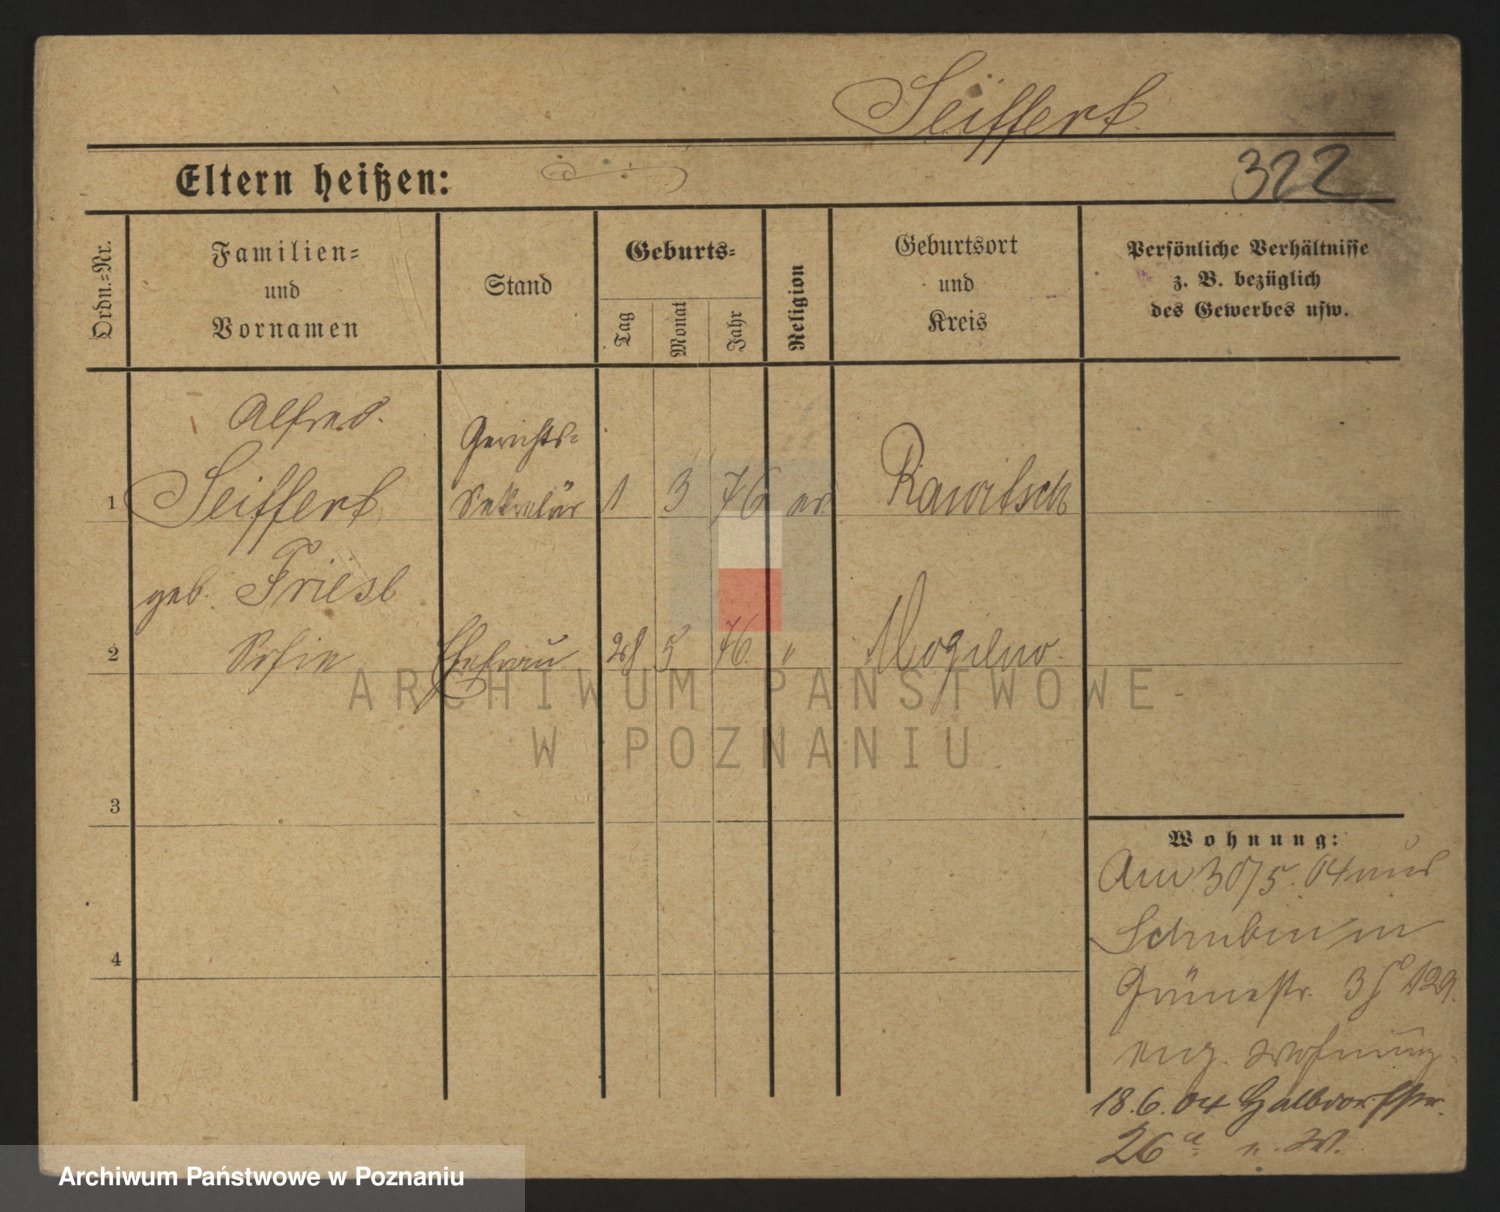 Seiffert.
Eltern heißen:
322
Ordn.-Nr.
Familien-
und
Vornamen
Stand
Geburts-
Tag
Monat
Jahr
Religion
Geburtsort
und
Kreis
Persönliche Verhältnisse
z. B. bezüglich
des Gewerbes usw.
Alfred.
1 Seiffert Gerichts-
Sekretär 1 3 76 ev Rawitsch
geb. Friesl
2 Sofie Ehefrau 28 5 76. " Mogilno.
3
4
Wohnung:
Am 30/5. 04 aus
Schubin in
Grünestr. 129.
eig. Wohnung.
18.6.04 Halbdorfstr.
26a e. W.
ARCHIWUM PAŃSTWOWE
W POZNANIU
Archiwum Państwowe w Poznaniu